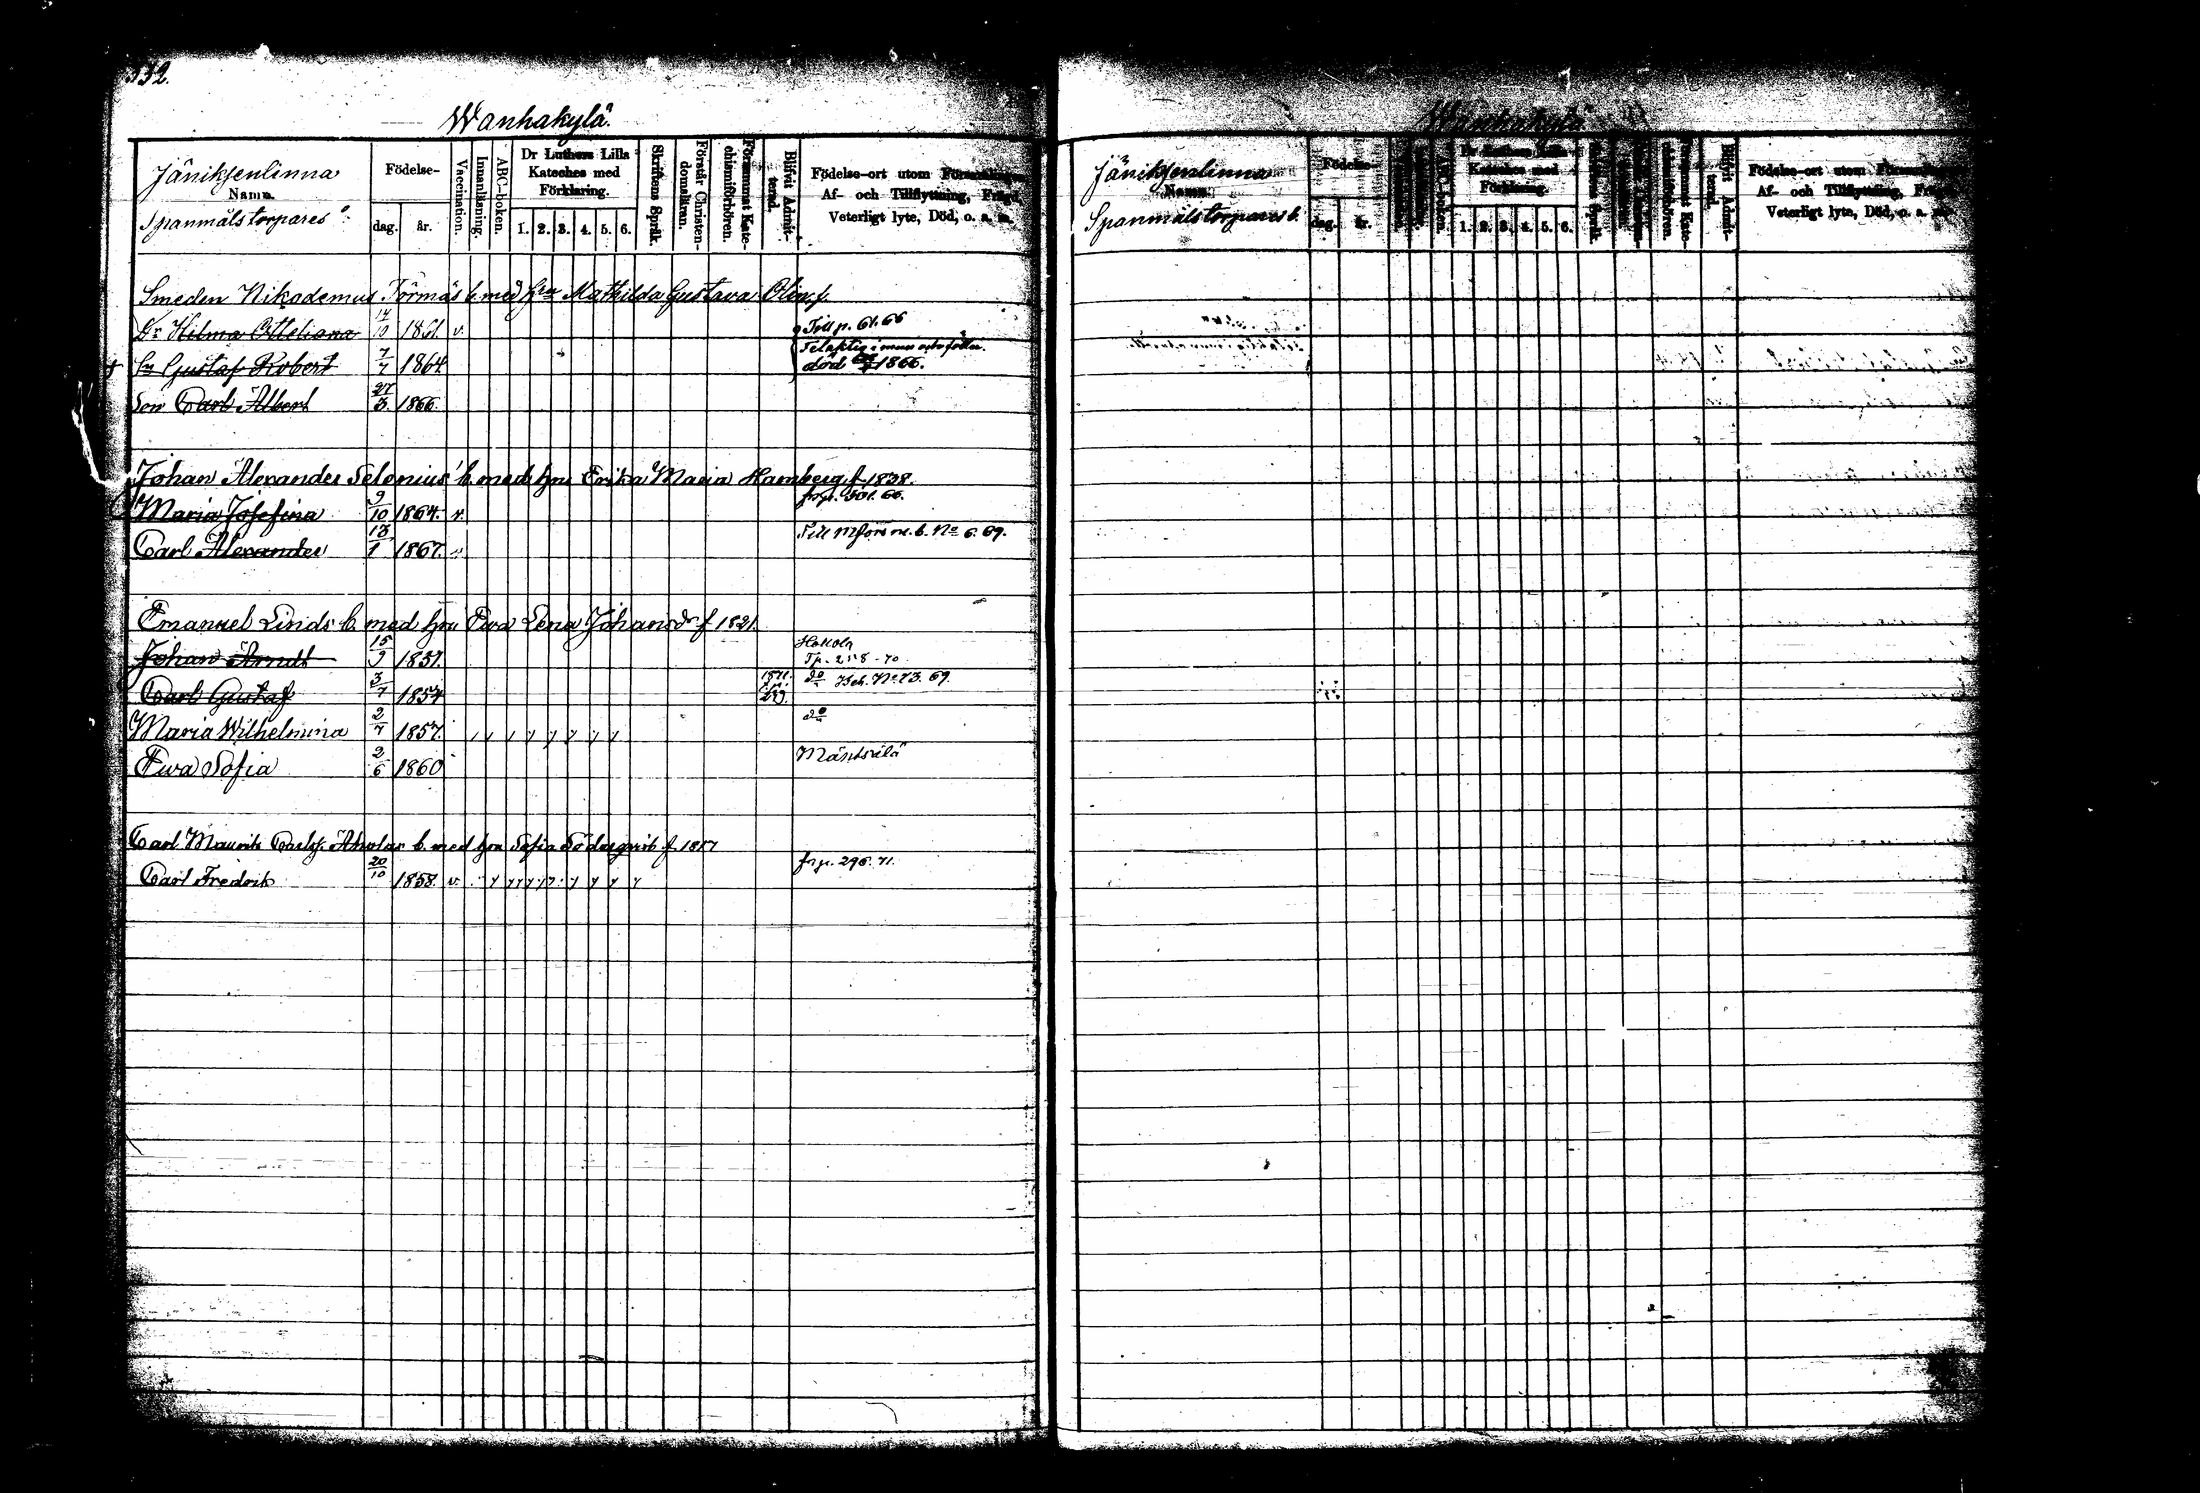 332.
Wanhakylä.
Jäniksenlinna
Namn.
Spanmålstorpares b.
Födelse-
dag. år.
Vaccination.
Innanläsning.
ABC-boken.
Dr Luthers Lilla Kateches med Förklaring.
1. 2. 3. 4. 5. 6.
Skriftens Språk.
Förstår Christendomsläran.
Försummat Katechismiförhören.
Blifvit Admitterad.
Födelse-ort utom Församlingen,
Af- och Tillflyttning, Frägd,
Veterligt lyte, Död, o. a. m.
Smeden Nikodemus Törmäs b. med hru Mathilda Gustava Olin f.
Dr Hilma Ottiliana 14/10 1861. v. Till p. 61. 66
Sn Gustaf Robert 7/7 1864 död 1866.
Son Carl Albert 27/3 1866.
Johan Alexander Selenius b. med hru Erika Maria Hamberg f. 1838.
Maria Josefina 9/10 1864. v. frp. 301. 66.
Carl Alexander 13/1 1867. v. Till Mfors m. b. No 6. 69.
Emanuel Linds b. med hru Ewa Lena Johansdr f 1821.
Johan Arndt 15/9 1851. Hakola Tp. 258-70
Carl Gustaf 3/7 1854 1871. do Bet. No 73. 69.
Maria Wilhelmina 2/7 1857. do
Ewa Sofia 2/6 1860 Mäntsälä
Carl Maurits Carlss. Aholas b. med hru Sofia Södergvist f. 1817
Carl Fredrik 20/10 1858. v. frp. 296. 71.
Wanhakylä
Jäniksenlinna
Namn.
Spanmålstorpares b.
Födelse-
dag. år.
ABC-boken.
Dr Luthers Lilla Kateches med Förklaring.
1. 2. 3. 4. 5. 6.
Skriftens Språk.
Försummat Katechismiförhören.
Blifvit Admitterad.
Födelse-ort utom Församlingen,
Af- och Tillflyttning, Frägd,
Veterligt lyte, Död, o. a. m.